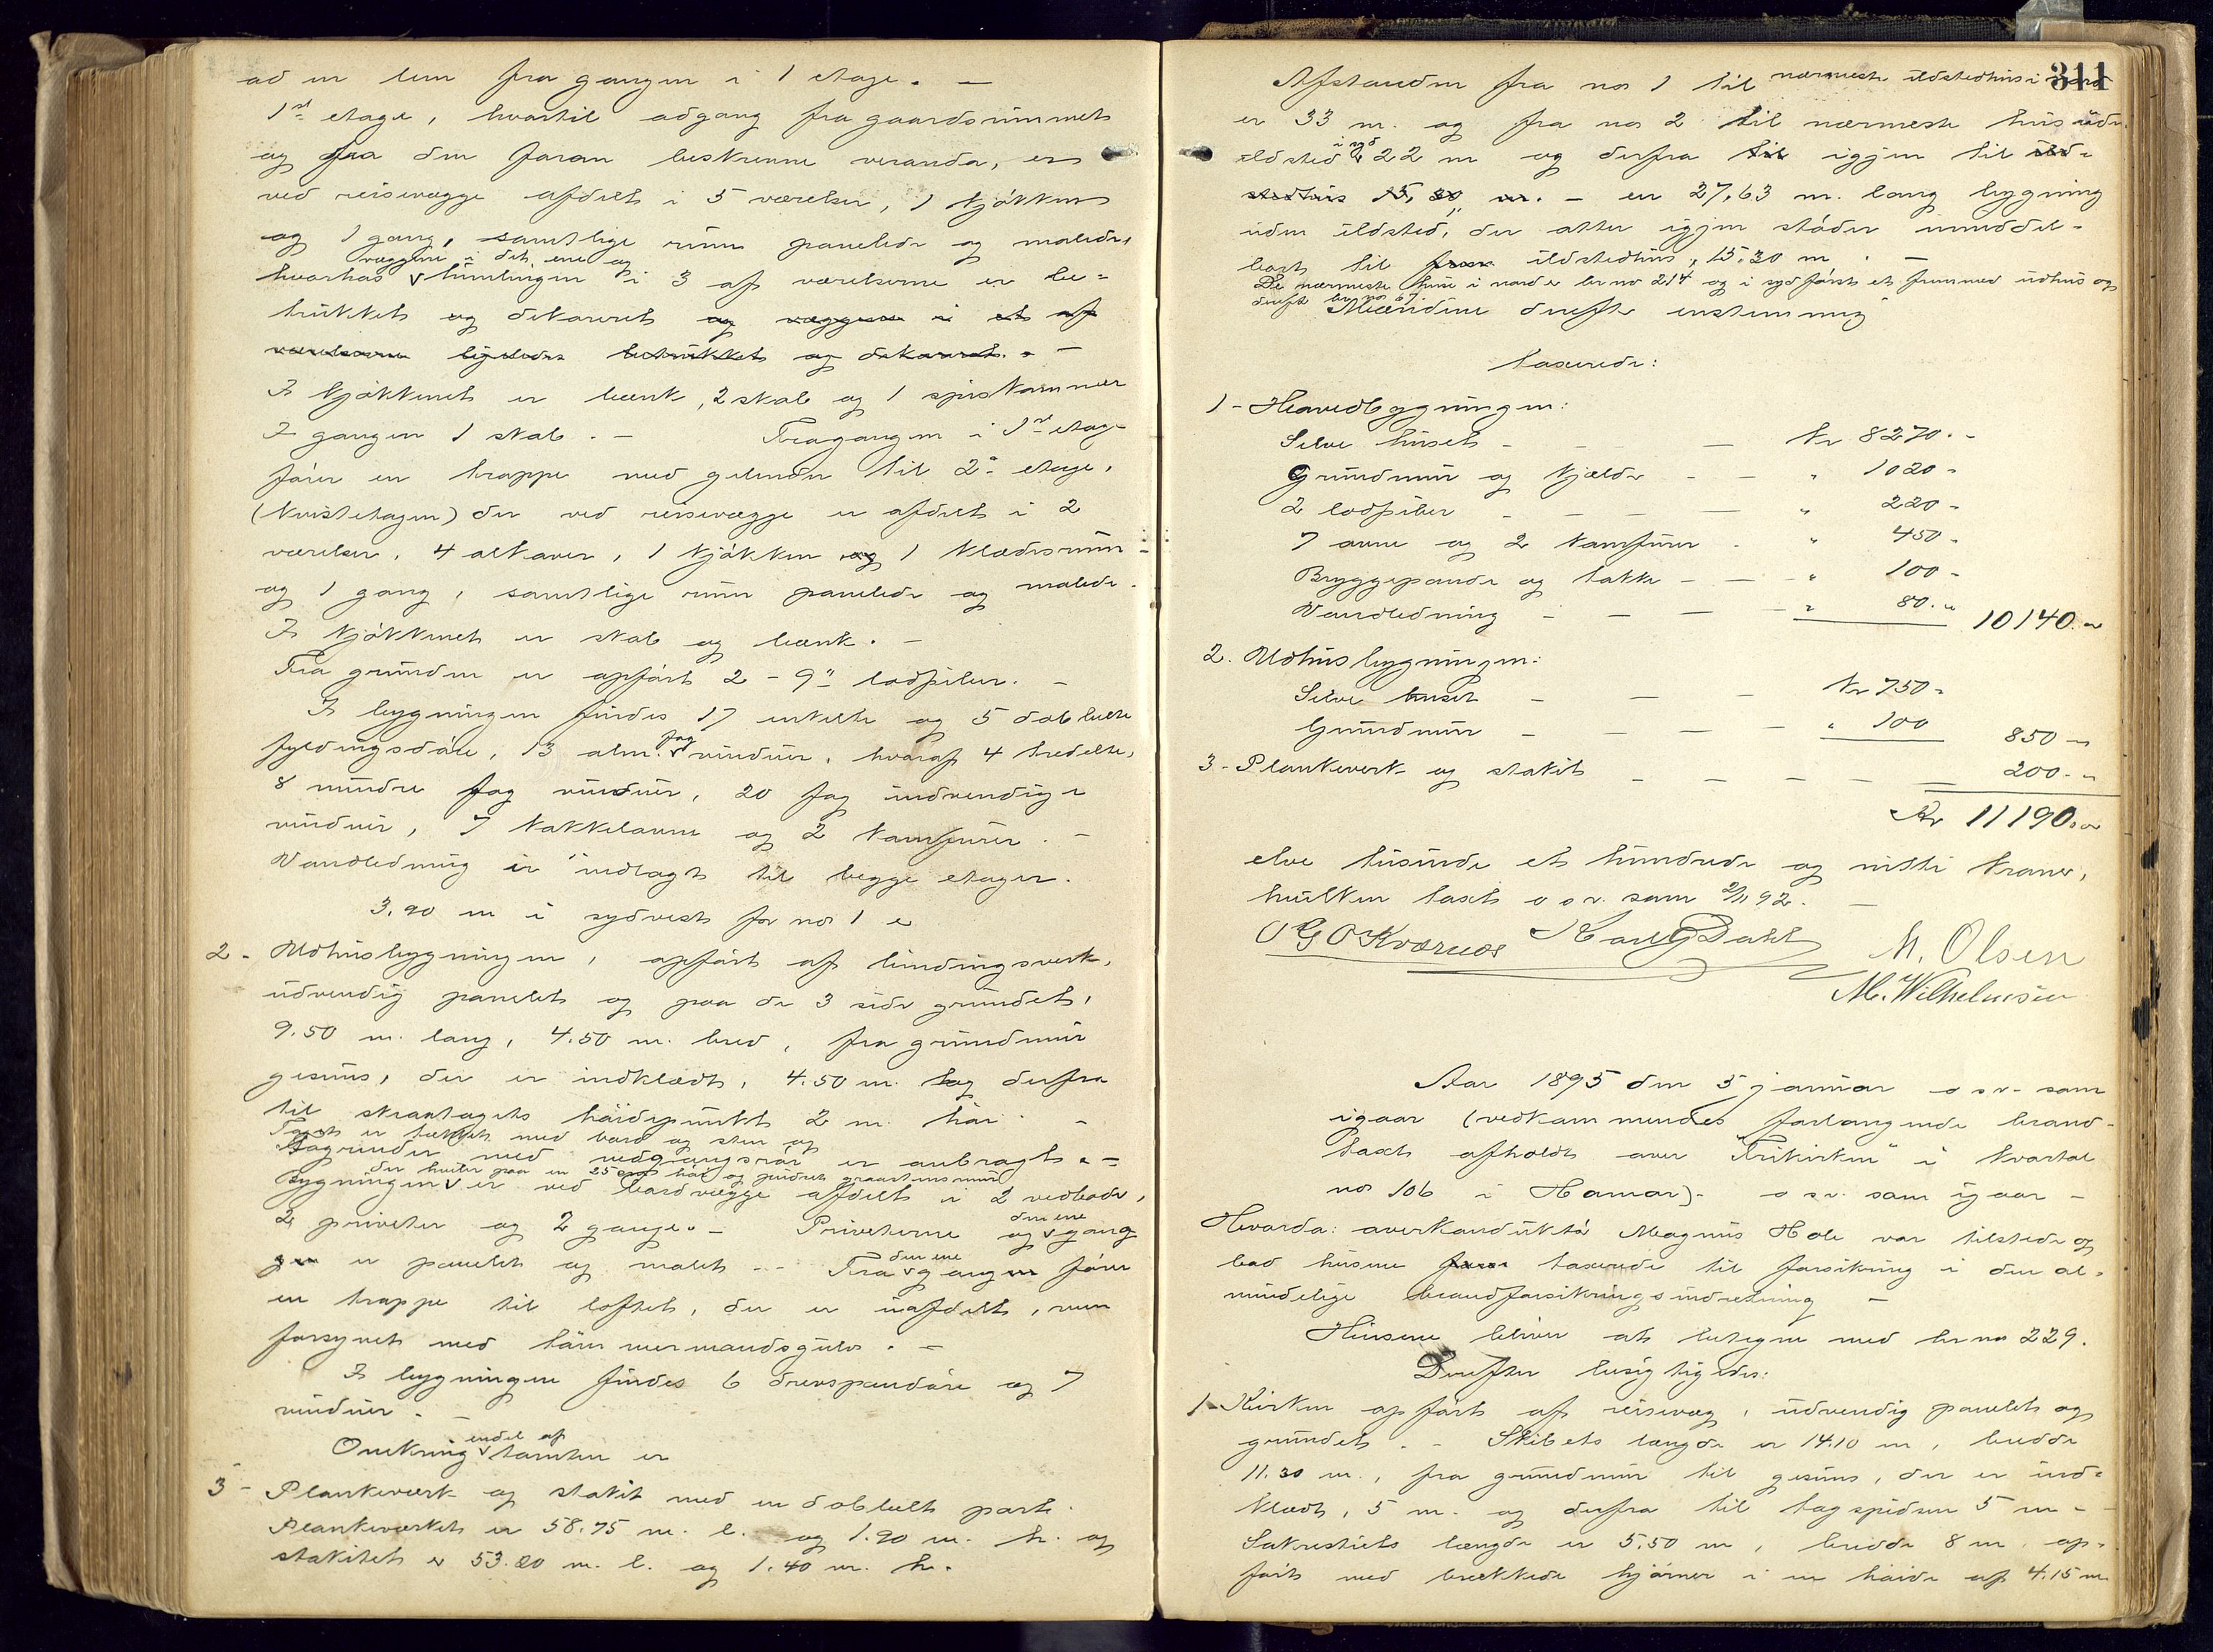 ad en lem fra gangen i 1 etage. —
1st etage, hvortil adgang fra gaardsrummet
og fra den foran beskrevne veranda, er
ved reisevægge afdelt i 5 værelser, 1 kjøkken
og 1 gang, samtlige rum panelede og malede,
væggene i det ene og
hvorhos himlingen i 3 af værelserne er be-
trukket og dekoreret og væggene i et af
værelserne ligeledes betrukket og dekoreret. —
I kjøkkenet er bænk, 2 skab og 1 spiskammer
I gangen 1 skab. — Fra gangen i 1st etage
fører en trappe med gelænder til 2den etage,
(kvistetagen) der ved reisevægge er afdelt i 2
værelser, 4 alkover, 1 kjøkken og 1 klædesrum
og 1 gang, samtlige rum panelede og malede.
I kjøkkenet er skab og bænk. —
Fra grunden er opført 2 - 9" lodpiber. —
I bygningen findes 17 enkelte og 5 dobbelte
fyldingsdøre, 13 alm. fag vinduer, hvoraf 4 tredelte,
8 mindre fag vinduer, 20 fag indvendige
vinduer, 7 kakkelovne og 2 komfurer. —
Vandledning er indlagt til begge etager.
3.90 m i sydvest for no 1 er
2 - Udhusbygningen, opført af bindingsverk,
udvendig panelet og paa de 3 sider grundet,
9.50 m. lang, 4.50 m. bred, fra grundmur
gesims, der er indklædt, 4.50 m. og derfra
til skraatagets høidepunkt 2 m. høi —
Taget er tækket med bord og sten og
Tagrender med nedgangsrør er anbragt. —
der hviler paa en 25 cm høi og pudset graastensmur
Bygningen er ved bordvægge afdelt i 2 vedboder,
2 priveter og 2 gange. — Priveterne og den ene gang
gen er panelet og malet. — Fra den ene gangen fører
en trappe til loftet, der er uafdelt, men
forsynet med tømmermandsgulv. —
I bygningen findes 6 drevspandøre og 7
vinduer. —
Omkring endel af tomten er
3 - Plankeverk og stakit med en dobbelt port.
Plankeverket er 58.75 m. l. og 1.90 m. h. og
stakitet er 53.80 m. l. og 1.40 m. h.
311
Afstanden fra no 1 til nærmeste ildstedhus i nord
er 33 m. og fra no 2 til nærmeste hus uden
ildsted i syd 22 m og derfra til igjen til ild-
stedhus 15,30 m. — en 27,63 m. lang bygning
uden ildsted, der atter igjen støder umiddel-
bart til ildstedhus, 15.30 m. —
De nærmeste huse i nord er br no 214 og i syd først et fremmed udhus og
derefter br no 67.
Mændene derefter enstemmig
taxerede:
1 - Hovedbygningen:
Selve huset — — Kr 8270. -
Grundmur og kjælder - — " 1020 -
2 lodpiber - — — — " 220 -
7 ovne og 2 komfurer - " 450 -
Bryggepande og takke - — " 100 -
Vandledning - — — — " 80. - 10140. -
2. Udhusbygningen:
Selve huset - — — Kr 750 -
Grundmur - — — — " 100 850 -
3 - Plankeverk og stakit — — — — — 200. -
Kr 11190. -
elve tusinde et hundrede og nitti kroner,
hvilken taxt o s v. som 2/11 92. —
O G O Kværnes Karl G Dahl M. Olsen
M. Wilhelmsen
Aar 1895 den 5 januar o s v. som
igaar (vedkommendes forlangende brand-
taxt afholdt over "Frikirken" i kvartal
no 106 i Hamar). o s v. som igaar —
Hvorda: overkonduktør Magnus Hole var tilstede og
bad husene taxerede til forsikring i den al-
mindelige brandforsikringsindretning —
Husene bliver at betegne med br no 229.
Derefter besigtigedes:
1 - Kirken opført af reisevæg, udvendig panelet og
grundet. - Skibets længde er 14.10 m, bredde
11.30 m., fra grundmur til gesims, der er ind-
klædt, 5 m. og derfra til tagspidsen 5 m -
Sakrestiets længde er 5.50 m, bredde 8 m. op-
ført med brækkede hjørner i en høide af 4.15 m